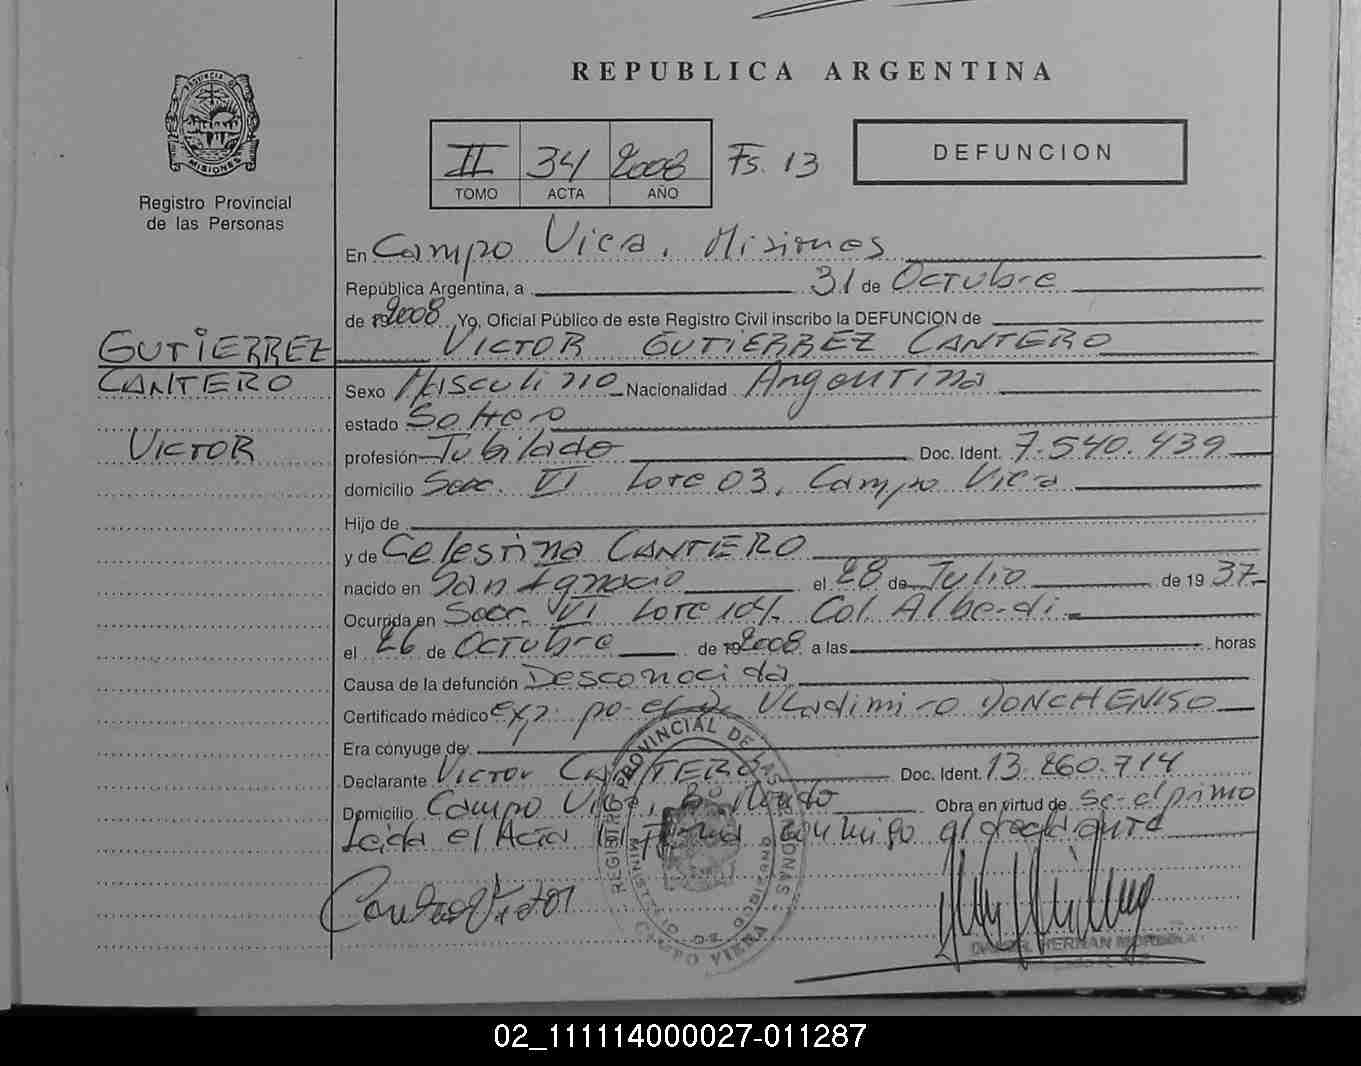 REPUBLICA ARGENTINA
PROVINCIA DE MISIONES
Registro Provincial
de las Personas
II 34 2008 Fs. 13
TOMO ACTA AÑO
DEFUNCION
En Campo Viera, Misiones
República Argentina, a 31 de Octubre
de 2008 Yo, Oficial Público de este Registro Civil inscribo la DEFUNCION de
GUTIERREZ VICTOR GUTIERREZ CANTERO
CANTERO Sexo Masculino Nacionalidad Argentina
estado Soltero
VICTOR profesión Jubilado Doc. Ident. 7.540.439
domicilio Secc. VI Lote 03, Campo Viera
Hijo de
y de Celestina CANTERO
nacido en San Ignacio el 28 de Julio de 1937
Ocurrida en Secc. VI Lote 104. Col. Alberdi
el 26 de Octubre de 2008 a las horas
Causa de la defunción Desconocida
Certificado médico exp. por el Dr. Vladimiro
Era cónyuge de
Declarante Victor CANTERO Doc. Ident. 13.260.714
Domicilio Campo Viera, Obra en virtud de
Leida el Acta la Firma conmigo el declarante
REGISTRO PROVINCIAL DE LAS PERSONAS
MINISTERIO DE GOBIERNO
CAMPO VIERA
02_111114000027-011287